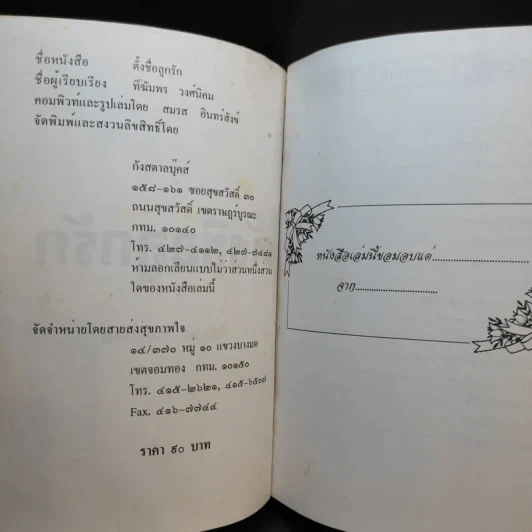 ชื่อหนังสือ ตั้งชื่อลูกรัก
ชื่อผู้เรียบเรียง ทิฆัมพร วงศ์นิคม
คอมพิวท์และรูปเล่มโดย สมรส อินทร์สังข์
จัดพิมพ์และสงวนลิขสิทธิ์โดย
กังสดาลบุ๊คส์
๑๕๘-๑๖๑ ซอยสุขสวัสดิ์ ๓๐
ถนนสุขสวัสดิ์ เขตราษฎร์บูรณะ
กทม. ๑๐๑๔๐
โทร. ๔๒๗-๔๑๑๒, ๔๒๗-๘๔๘๑
ห้ามลอกเลียนแบบไม่ว่าส่วนหนึ่งส่วน
ใดของหนังสือเล่มนี้
จัดจำหน่ายโดยสายส่งสุขภาพใจ
๑๔/๓๗๐ หมู่ ๑๐ แขวงบางมด
เขตจอมทอง กทม. ๑๐๑๕๐
โทร. ๔๑๕-๒๖๒๑, ๔๑๕-๖๕๐๗
Fax. ๔๑๖-๗๗๔๔
ราคา ๙๐ บาท
หนังสือเล่มนี้ขอมอบแด่
จาก